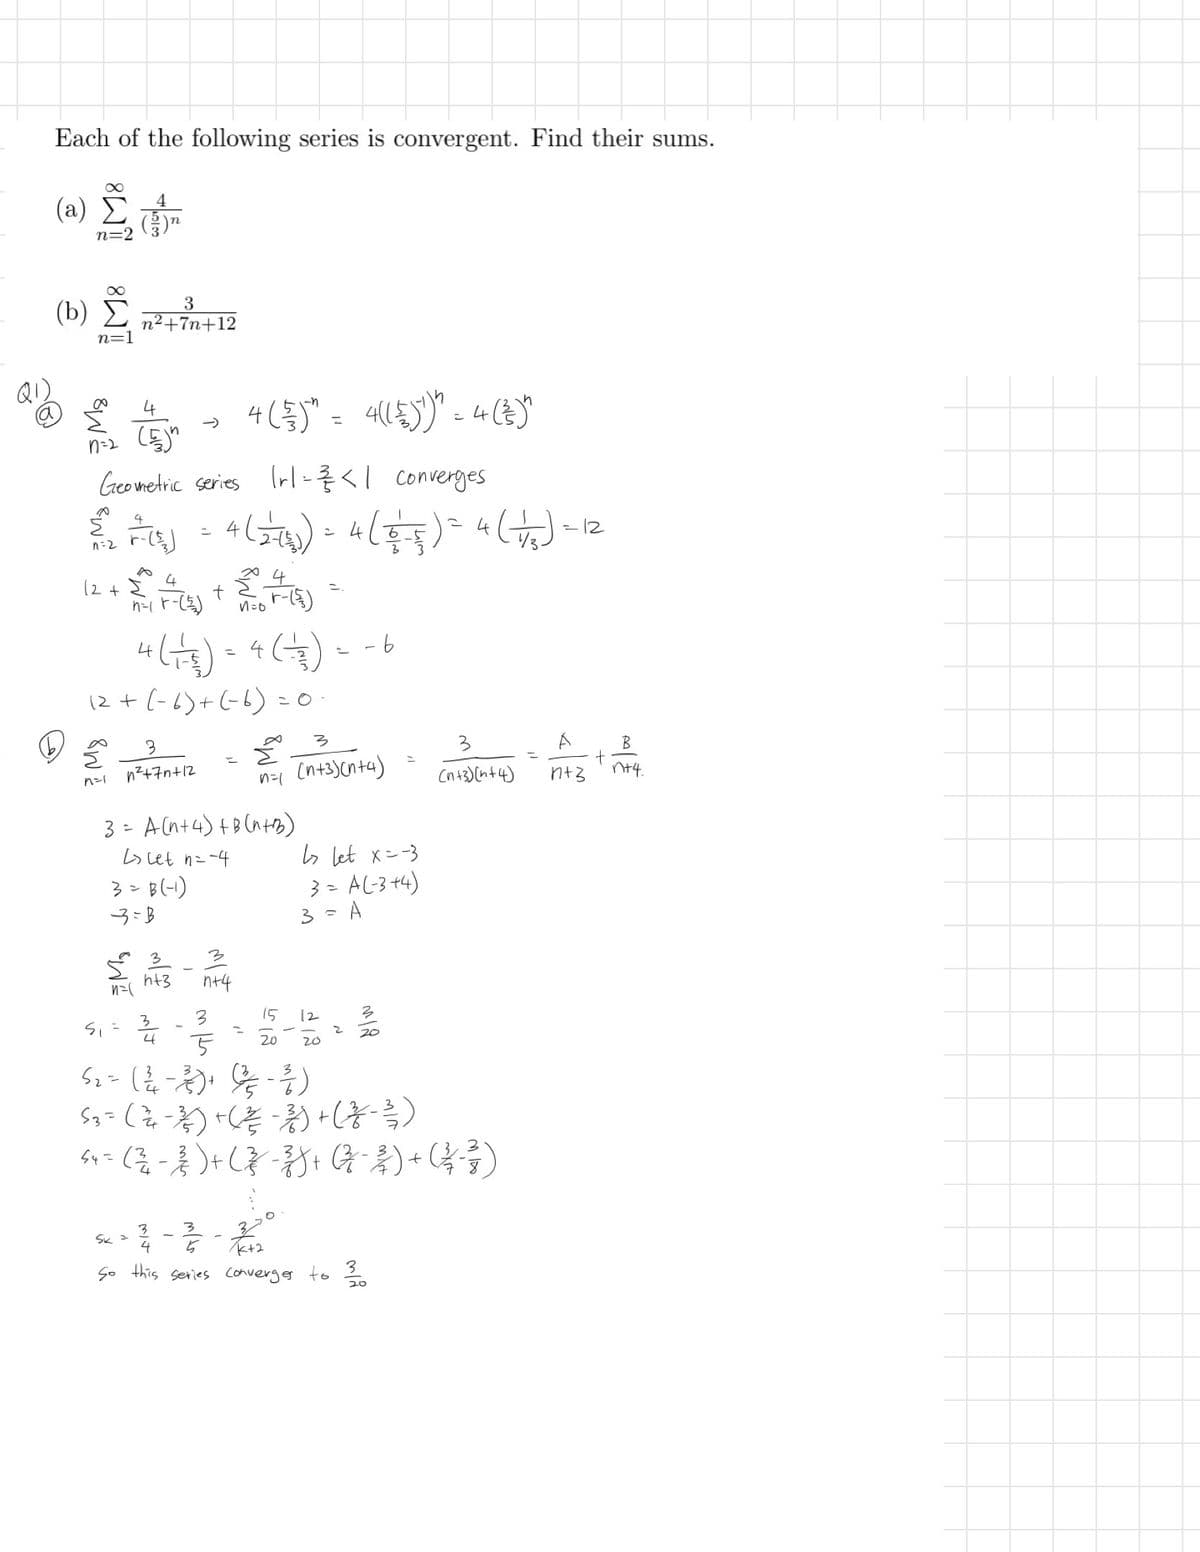 Each of the following series is convergent. Find their sums.
(a) ∞∑n=2 4/(5/3)^n
(b) ∞∑n=1 3/(n²+7n+12)
Q1)
ⓐ ∞∑n=2 4/(5/3)^n → 4(5/3)^-n = 4((5/3)^-1)^n = 4(3/5)^n
Geometric series |r| = 3/5 < 1 converges
∞∑n=2 4/(r-(5/3)) = 4(1/(2-(5/3))) = 4(1/(6/3-5/3)) = 4(1/(1/3)) = 12
12 + ∞∑n=1 4/(r-(5/3)) + ∞∑n=0 4/(r-(5/3)) =
4(1/(1-5/3)) = 4(1/(-2/3)) = -6
12 + (-6)+(-6) = 0.
ⓑ ∞∑n=1 3/(n²+7n+12) = ∞∑n=1 3/((n+3)(n+4)) = 3/((n+3)(n+4)) = A/(n+3) + B/(n+4)
3 = A(n+4)+B(n+3)
↳ Let n=-4 ↳ let x=-3
3 = B(-1) 3 = A(-3+4)
-3=B 3 = A
∞∑n=1 3/(n+3) - 3/(n+4)
S1 = 3/4 - 3/5 = 15/20 - 12/20 = 3/20
S2 = (3/4 - 3/5) + (3/5 - 3/6)
S3 = (3/4 - 3/5) + (3/5 - 3/6) + (3/6 - 3/7)
S4 = (3/4 - 3/5) + (3/5 - 3/6) + (3/6 - 3/7) + (3/7 - 3/8)
⋮
Sk = 3/4 - 3/5 - 3/(k+2) → 0
So this series converges to 3/20